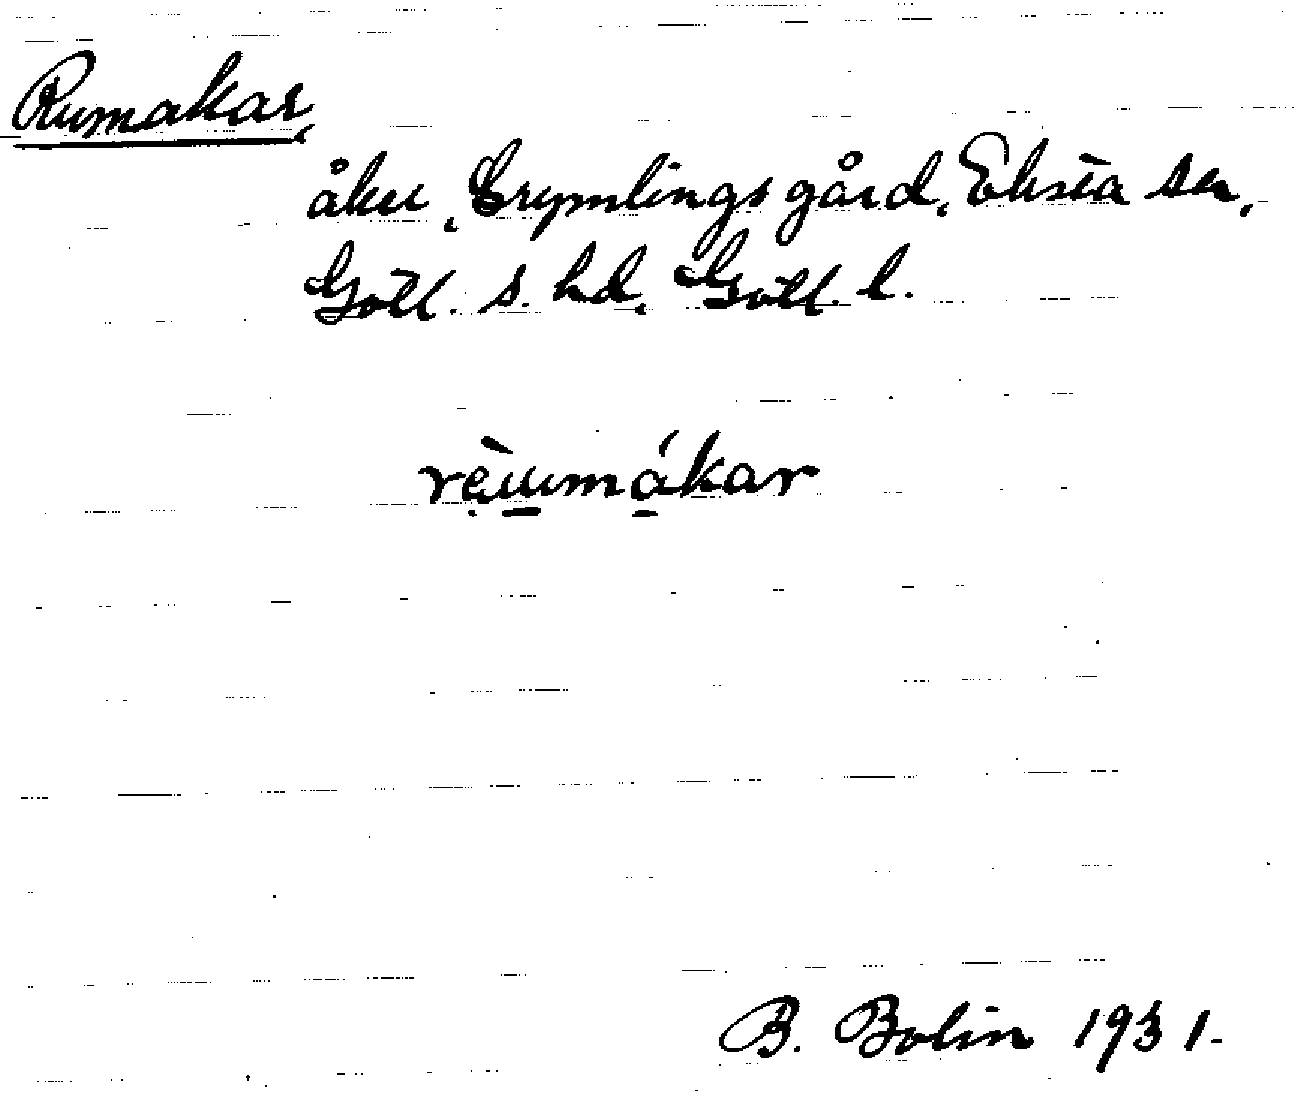 Rumakar,
åker, Grymlings gård, Eksta sn,
Gotl. s. hd, Gotl. l.
B. Bolin 1931.